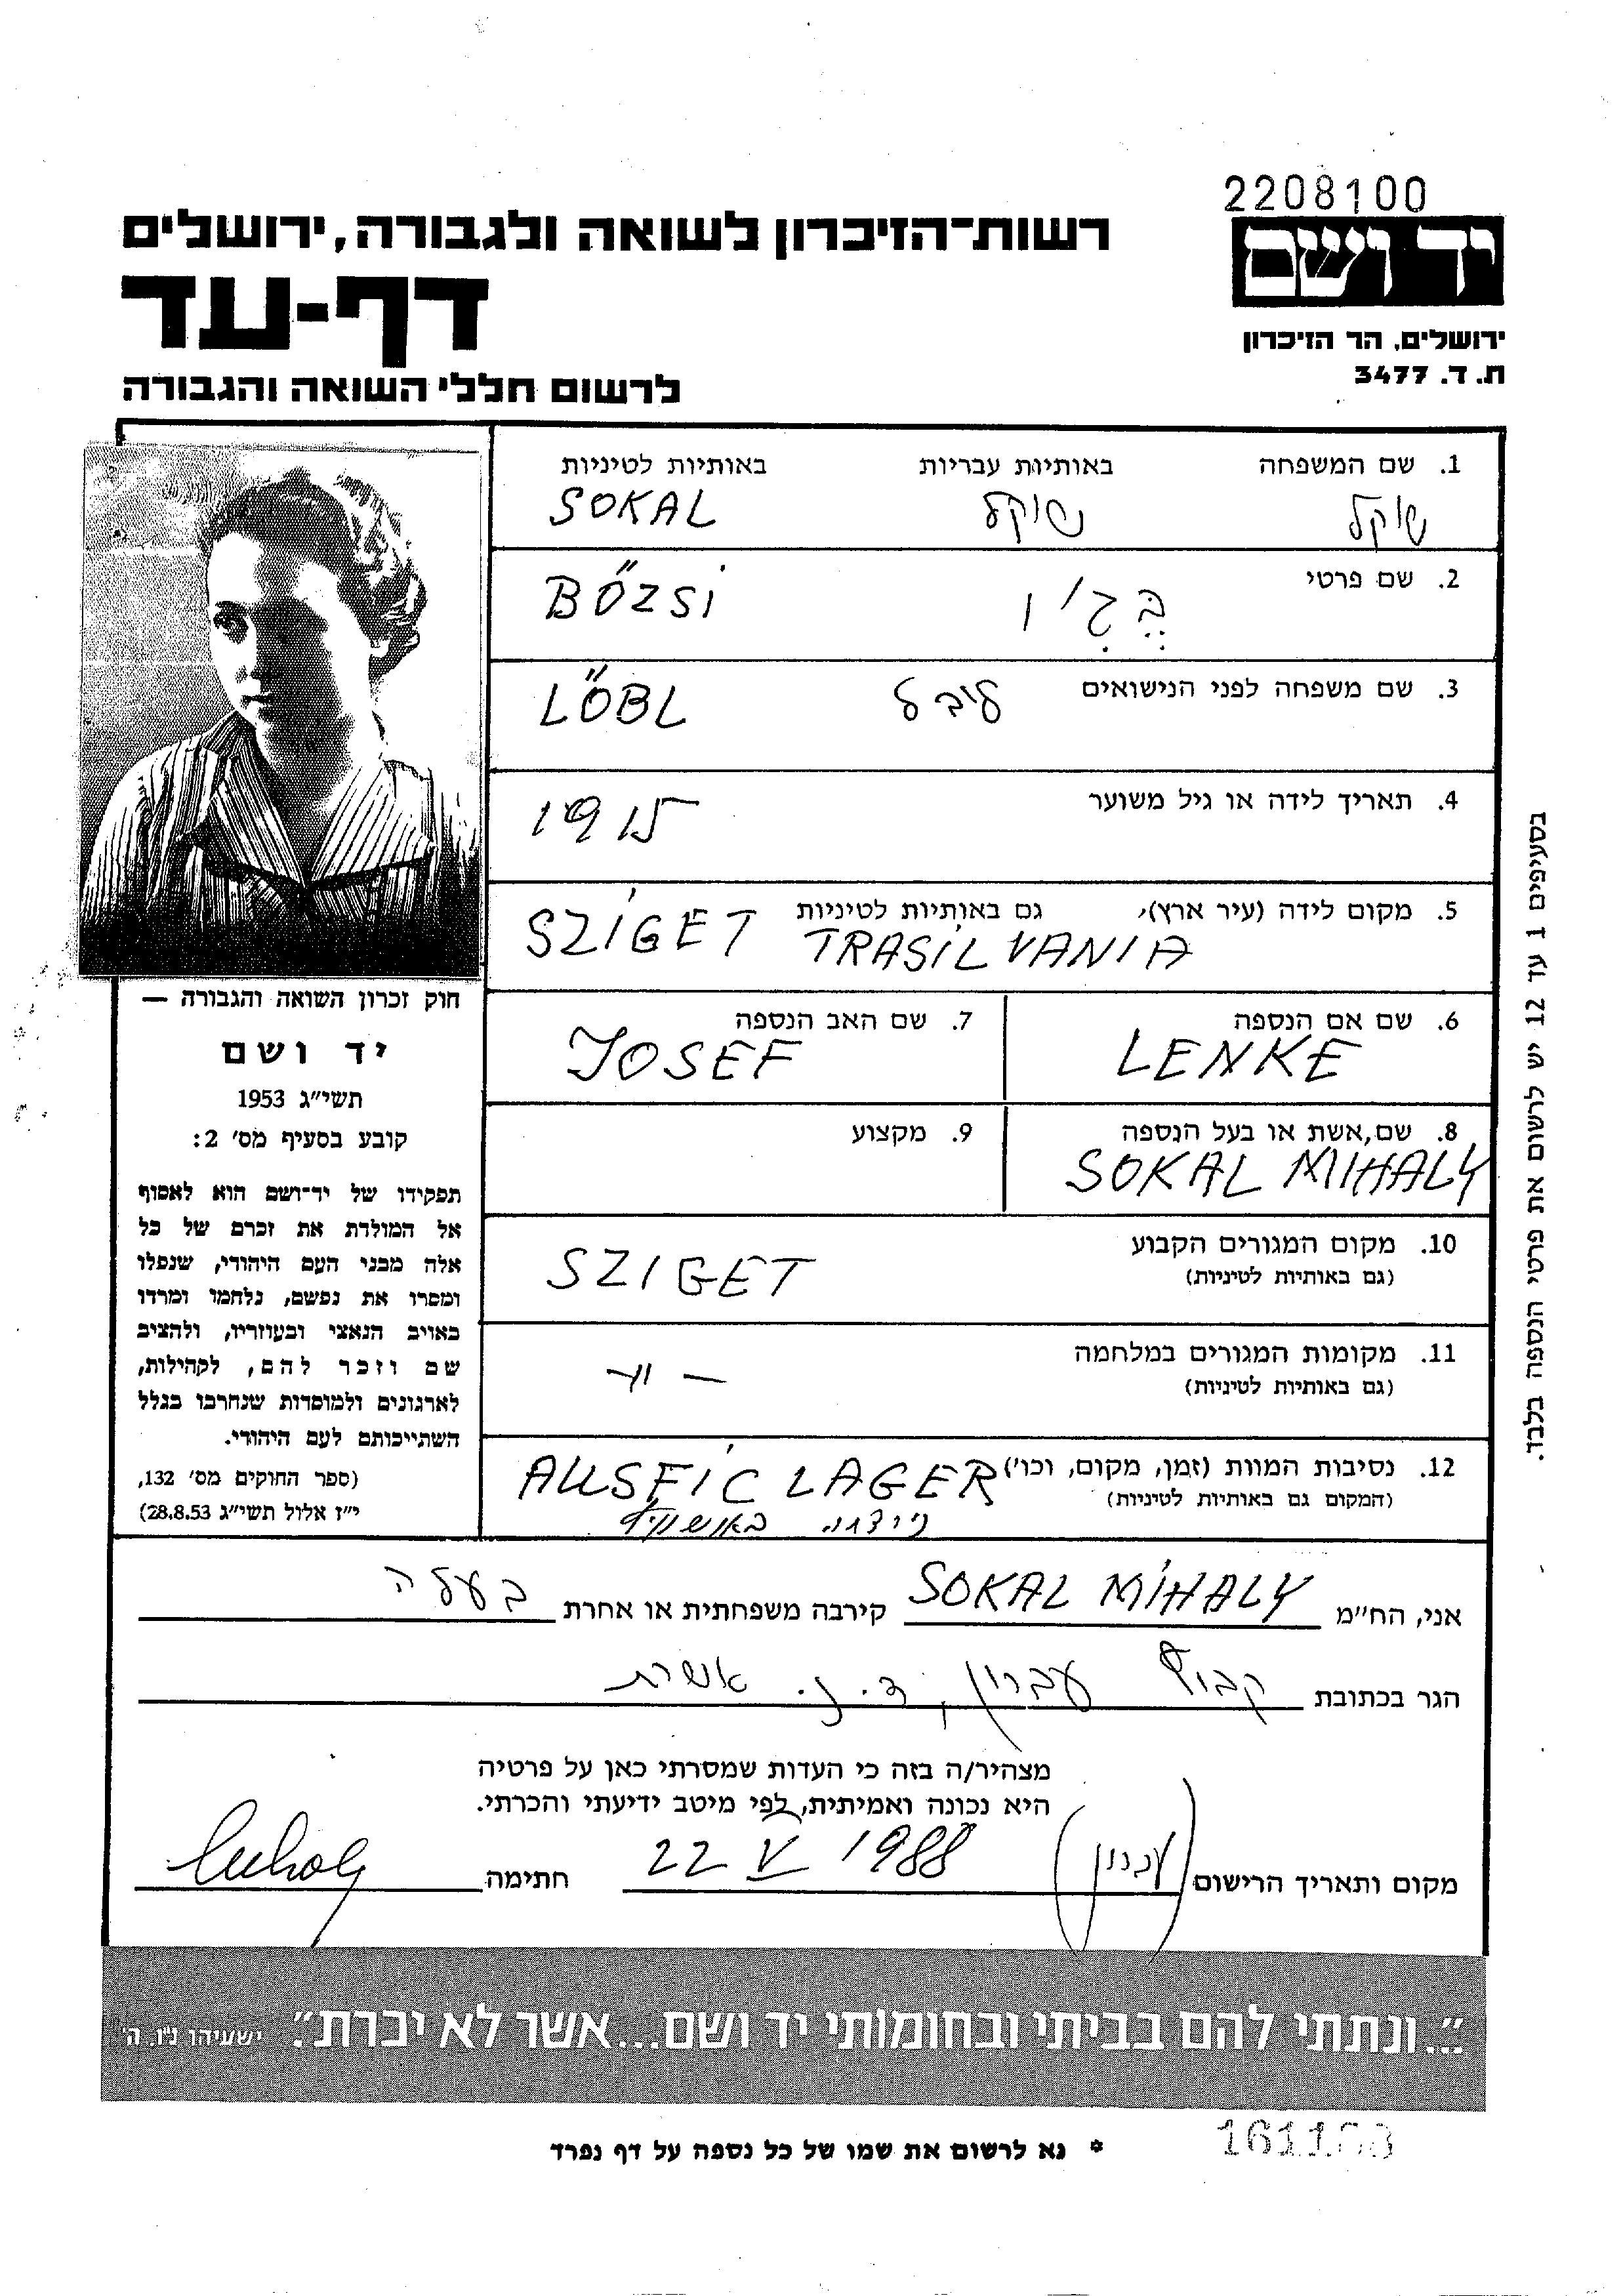 2208100
רשות־הזיכרון לשואה ולגבורה, ירושלים
יד ושם
דף-עד
ירושלים, הר הזיכרון
ת. ד. 3477
לרשום חללי השואה והגבורה
1. שם המשפחה באותיות עבריות באותיות לטיניות
שוקל שוקל SOKAL
2. שם פרטי
BŐZSI
3. שם משפחה לפני הנישואים ליבל LŐBL
4. תאריך לידה או גיל משוער 1915
5. מקום לידה (עיר ארץ), גם באותיות לטיניות
SZIGET TRASILVANIA
6. שם אם הנספה 7. שם האב הנספה
LENKE JOSEF
8. שם, אשת או בעל הנספה 9. מקצוע
SOKAL MIHALY
10. מקום המגורים הקבוע
(גם באותיות לטיניות)
SZIGET
11. מקומות המגורים במלחמה
(גם באותיות לטיניות)
— " —
12. נסיבות המוות (זמן, מקום, וכו')
(המקום גם באותיות לטיניות)
AUSFIC LAGER
באושוויץ
חוק זכרון השואה והגבורה —
יד ושם
תשי"ג 1953
קובע בסעיף מס' 2:
תפקידו של יד־ושם הוא לאסוף
אל המולדת את זכרם של כל
אלה מבני העם היהודי, שנפלו
ומסרו את נפשם, נלחמו ומרדו
באויב הנאצי ובעוזריו, ולהציב
שם וזכר להם, לקהילות,
לארגונים ולמוסדות שנחרבו בגלל
השתייכותם לעם היהודי.
(ספר החוקים מס' 132,
י"ז אלול תשי"ג 28.8.53)
בסעיפים 1 עד 12 יש לרשום את פרטי הנספה בלבד.
אני, הח"מ SOKAL MIHALY קירבה משפחתית או אחרת בעלה
הגר בכתובת קבוץ עברון, ד.נ. אשרת
מצהיר/ה בזה כי העדות שמסרתי כאן על פרטיה
היא נכונה ואמיתית, לפי מיטב ידיעתי והכרתי.
מקום ותאריך הרישום (עברון) 22 V 1988 חתימה
"...ונתתי להם בביתי ובחומותי יד ושם...אשר לא יכרת". ישעיהו נ"ו, ה'
* נא לרשום את שמו של כל נספה על דף נפרד